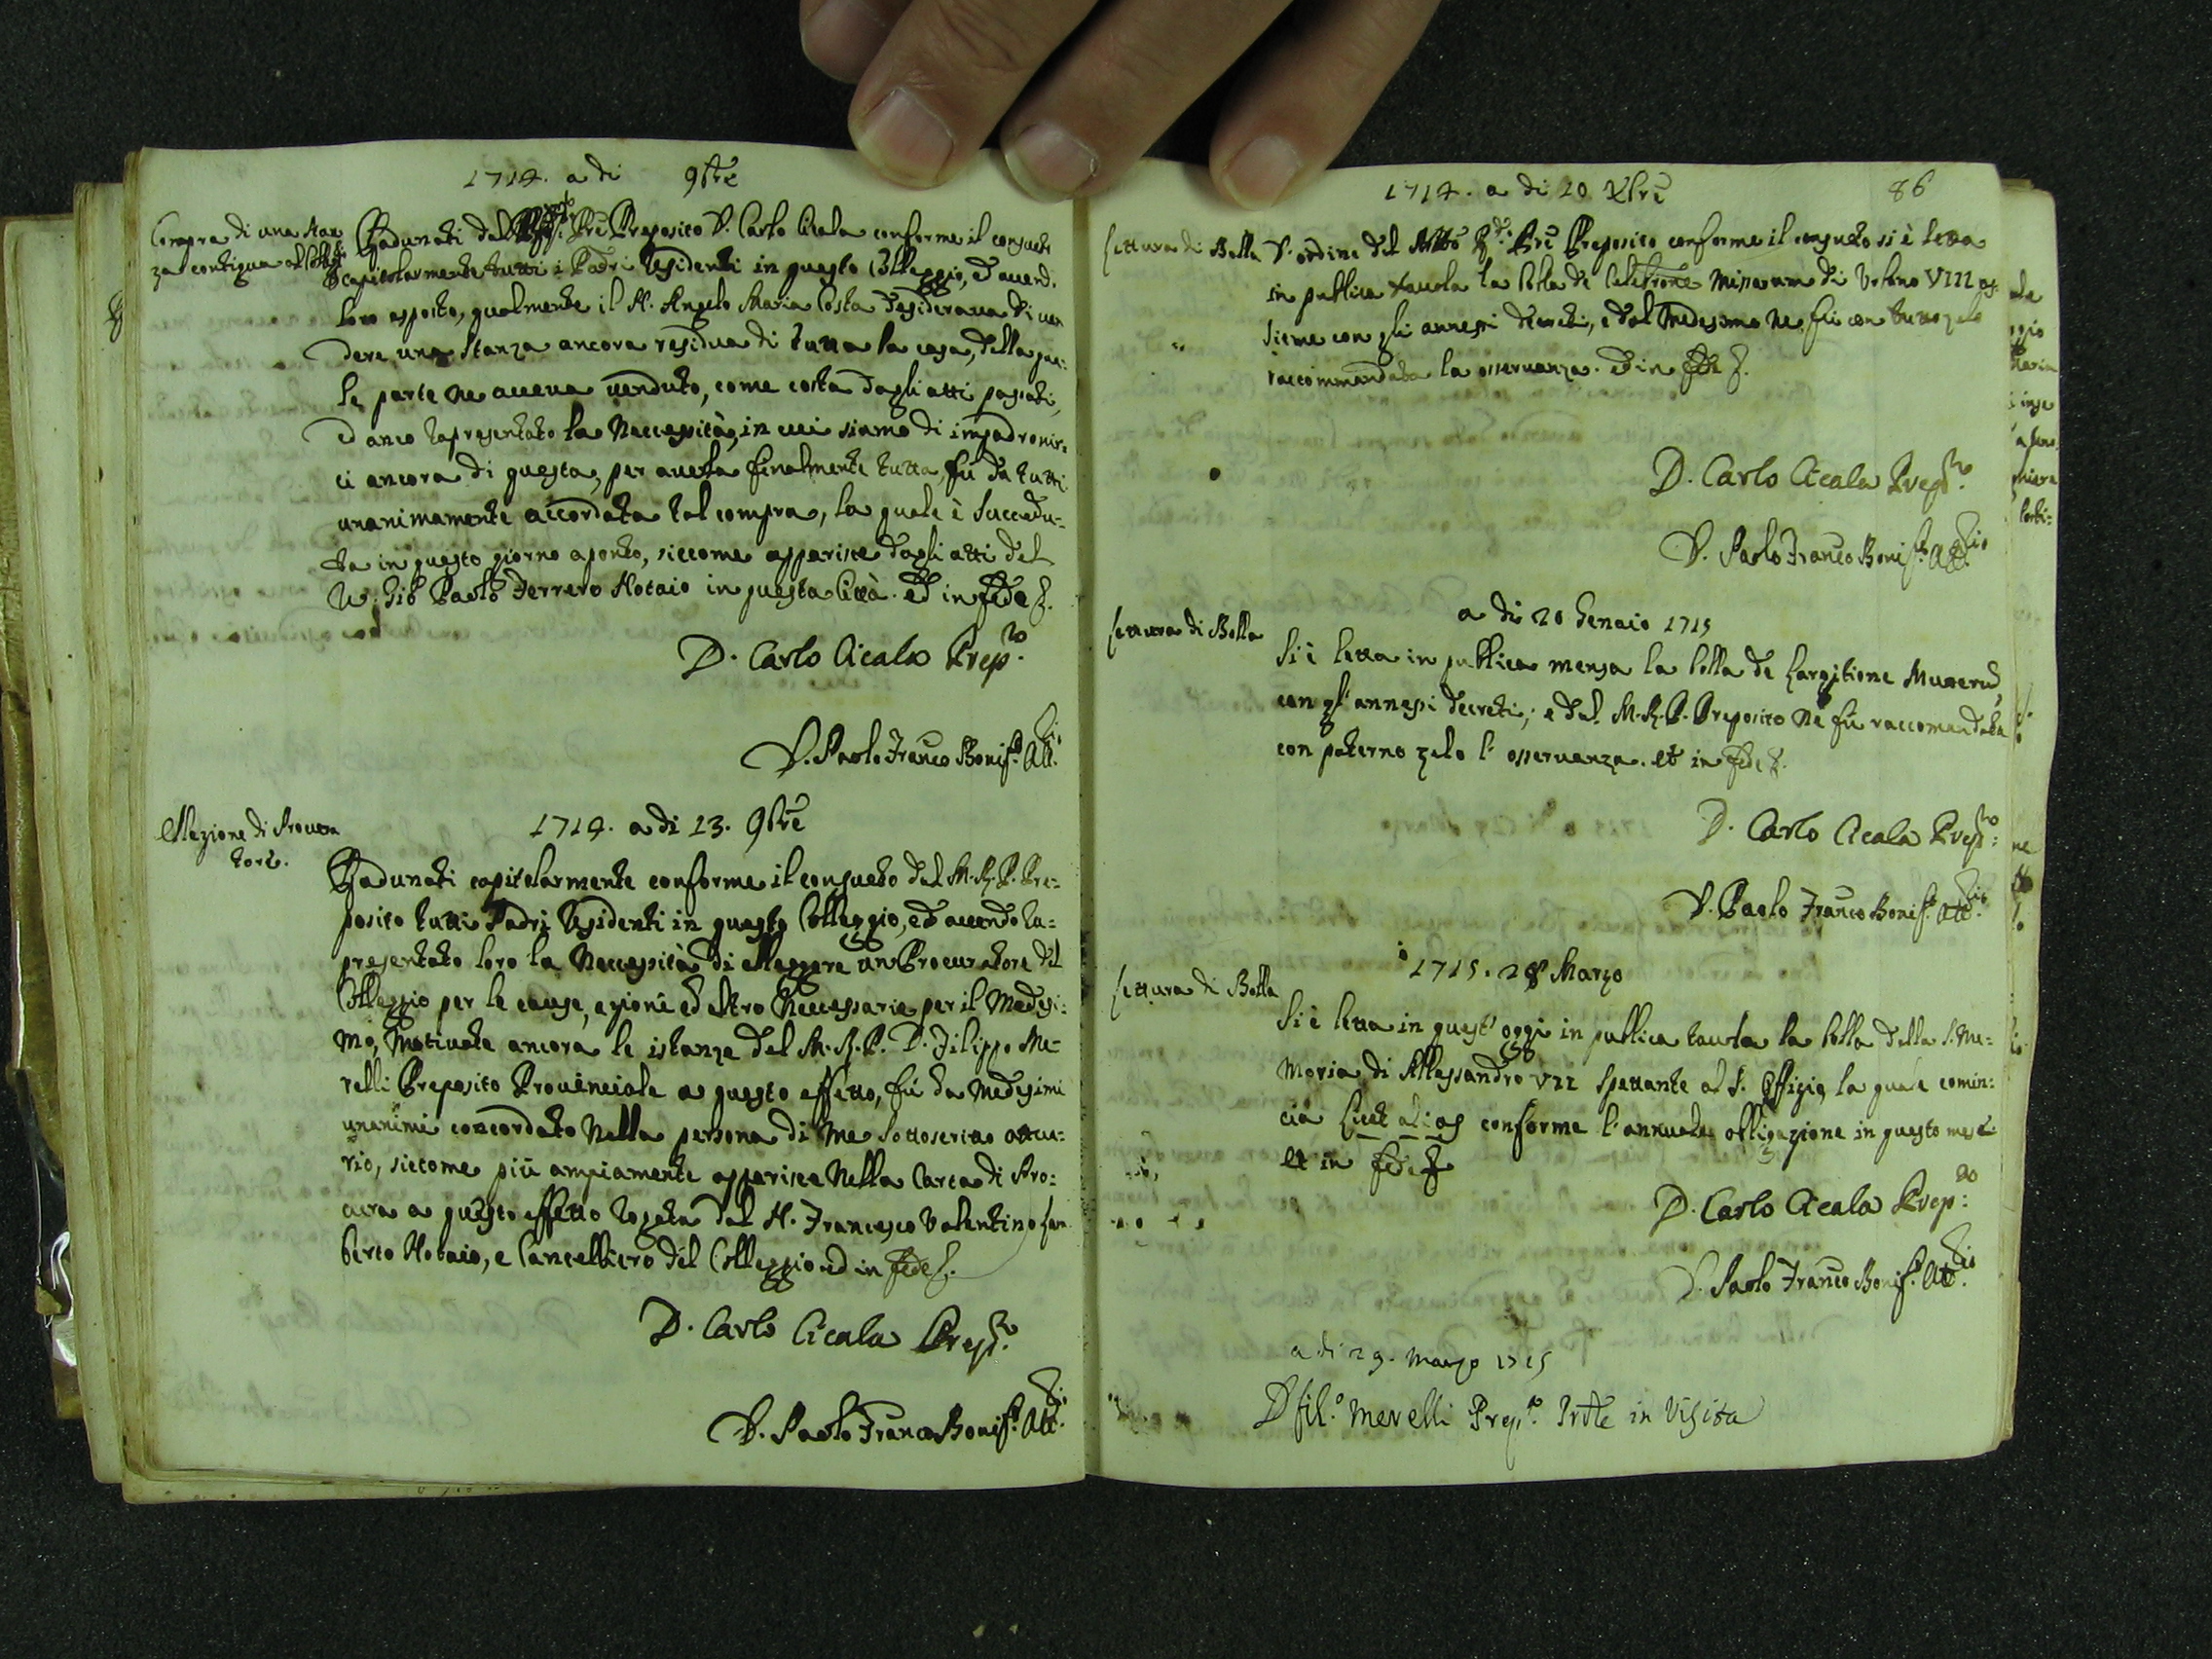 1714. a di 9bre
Compra di una stan
za contigua al Colleg.
Radunati dal Pre Preposito D. Carlo Cicala conforme il consueto
capitolarmente tutti i Padri residenti in questo Colleggio, ed auend.
loro esposto, qualmente il N. Angelo Maria Costa desideraua di uen
dere una stanza ancora residua di tutta la casa, della qua-
le parte ne aueua uenduto, come costa dagli atti passati,
ed anco rapresentato la Neccessità, in cui siamo di impadronir-
ci ancora di questa, per auerla finalmente tutta, fu da tutti
unanimamente accordata tal compra, la quale è succedu-
ta in questo giorno aponto, siccome apparisce dagli atti del
Gio Paolo Ferrero Notaio in questa Città. Ed in fede
D. Carlo Cicala Prep.to
D. Paolo Franco Bonif.o Att.rio
ellezione di Procura
tore.
1714. a di 13. 9bre
Radunati capitolarmente conforme il consueto dal M.R.P. Pre-
posito tutti Padri residenti in questo Colleggio, ed auendo ra-
presentato loro la Neccessità di elleggere un Procuratore del
Colleggio per le cause, azioni ed altro Neccessario per il Medesi-
mo, motiuate ancora le istanze del M.R.P. D. Filippo Me-
relli Preposito Prouinciale a questo effetto, fu da medesimi
unanimi concordato Nella persona di me sottoscritto attua-
rio, siccome più ampiamente apparisce Nella Carta di Pro-
cura a questo effetto rogata dal N. Francesco Valentino Lam
berto Notaio, e Cancelliero del Colleggio ed in fede
D. Carlo Cicala Prep.to
D. Paolo Franco Bonif.o Att.rio
86
1714. a di 20 Xbre
lettura di Bolla
D'ordine del Molto R.do Pre Preposito conforme il consueto si è letta
in publica tauola la bolla de Celebrone Missarum di Urbano VIII as-
sieme con gli annessi decreti, e dal medesimo ne fu con tutto zelo
raccommandata la osseruanza. Ed in fede
D. Carlo Cicala Prep.to
D. Paolo Franco Bonif.o Att.rio
a di 20 Genaio 1715
lettura di Bolla
Si è letta in publica mensa la bolla de Largitione Munerum,
con gl'annessi decreti; e dal M.R.P. Preposito ne fu raccomandata
con paterno zelo l'osseruanza. et in fede
D. Carlo Cicala Prep.to
D. Paolo Franco Bonif.o Att.rio
1715. 28 Marzo
lettura di Bolla
Si è letta in quest'oggi in publica tauola la bolla della S. Me-
moria di Allessandro VII spettante al S. Offizio, la quale comin-
cia Licet alias conforme l'annuale obligazione in questo mese
et in fede
D. Carlo Cicala Prep.to
D. Paolo Franco Bonif.o Att.rio
a di 29. Marzo 1715
D fil.o Merelli Prep.to Prle in Visita